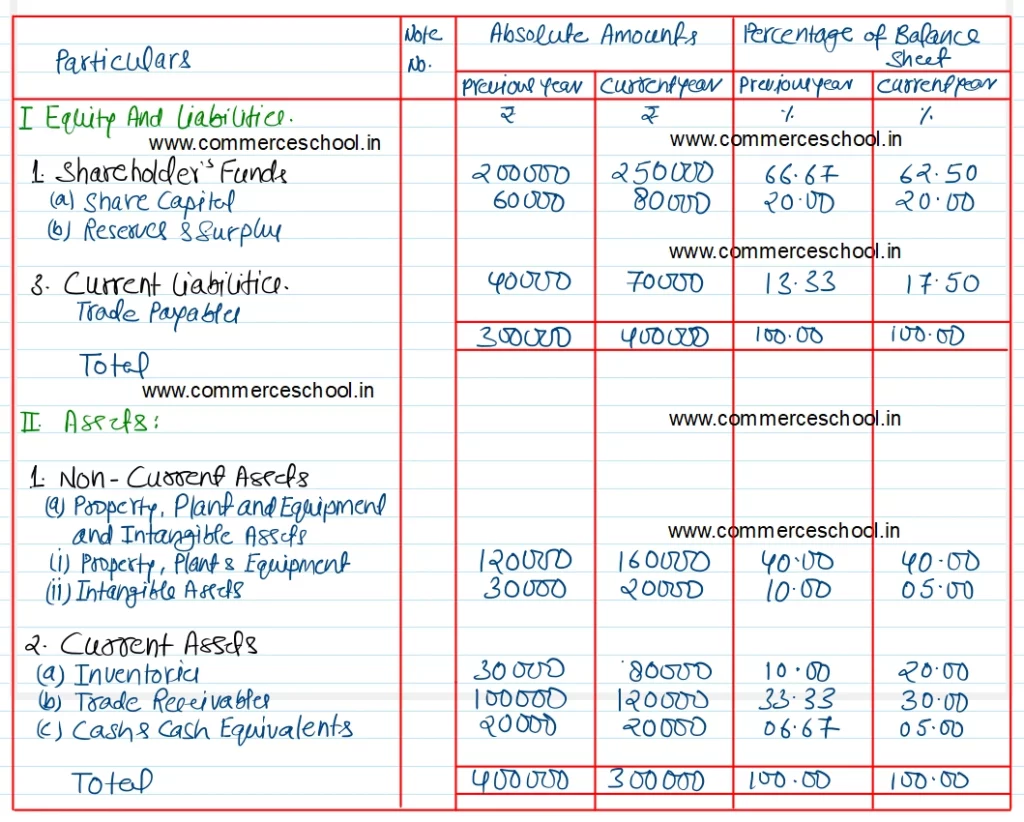 Particulars Note No. Absolute Amounts Percentage of Balance Sheet
Previous year Current year Previous year Current year
I Equity And Liabilities. ₹ ₹ % %
www.commerceschool.in www.commerceschool.in
1. Shareholder's Funds 200000 250000 66.67 62.50
(a) Share Capital 60000 80000 20.00 20.00
(b) Reserves & Surplus
www.commerceschool.in
3. Current Liabilities. 40000 70000 13.33 17.50
Trade Payables
300000 400000 100.00 100.00
Total
www.commerceschool.in
II. Assets: www.commerceschool.in
1. Non-Current Assets
(a) Property, Plant and Equipment
and Intangible Assets www.commerceschool.in
(i) Property, Plant & Equipment 120000 160000 40.00 40.00
(ii) Intangible Assets 30000 20000 10.00 05.00
2. Current Assets
(a) Inventories 30000 80000 10.00 20.00
(b) Trade Receivables 100000 120000 33.33 30.00
(c) Cash & Cash Equivalents 20000 20000 06.67 05.00
Total 400000 300000 100.00 100.00